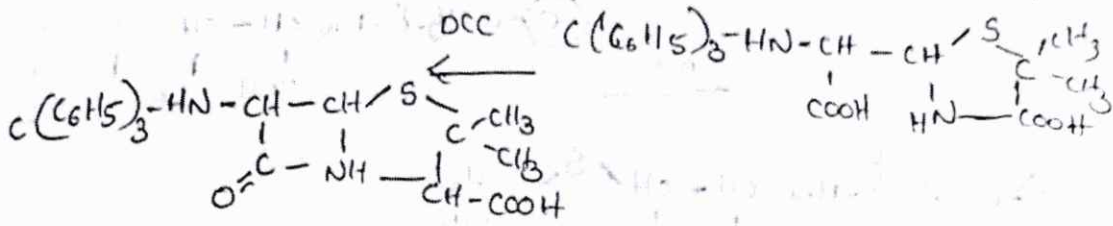 DCC
C(C6H5)3-HN-CH-CH S
C CH3
CH3
COOH HN COOH
C(C6H5)3-HN-CH-CH S
C CH3
CH3
O=C-NH
CH-COOH